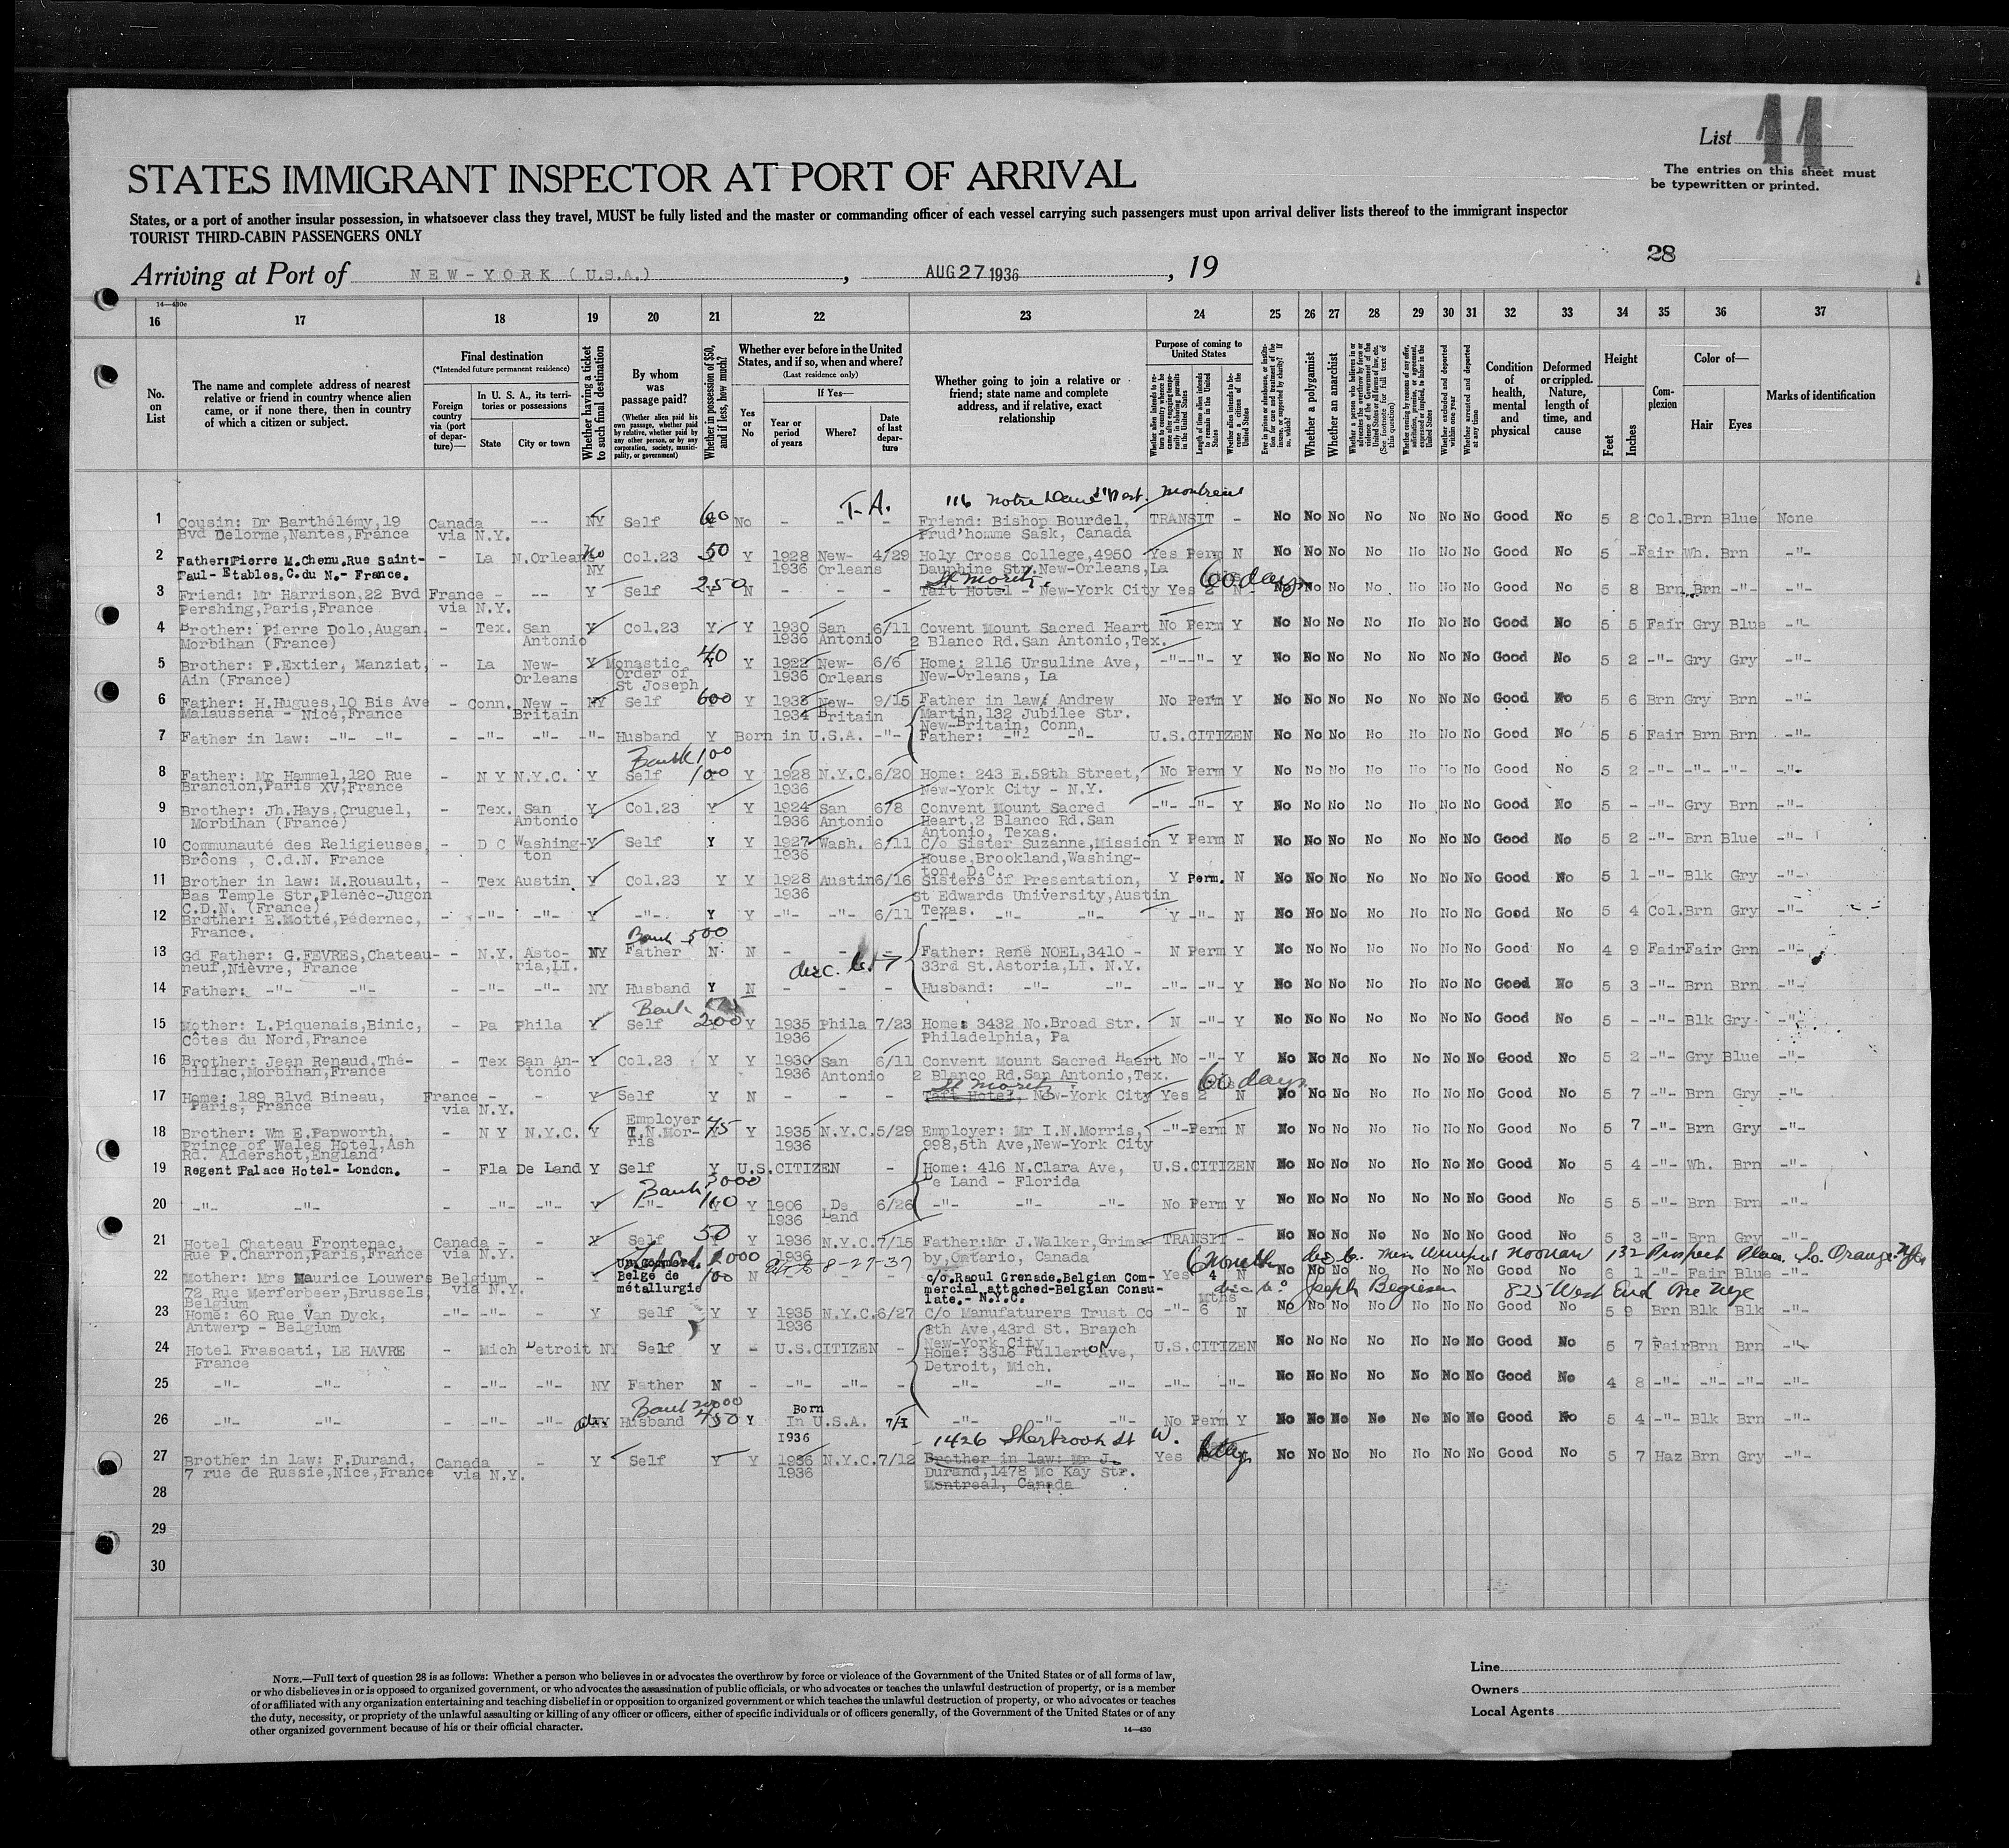 List 11
The entries on this sheet must
be typewritten or printed.
STATES IMMIGRANT INSPECTOR AT PORT OF ARRIVAL
States, or a port of another insular possession, in whatsoever class they travel, MUST be fully listed and the master or commanding officer of each vessel carrying such passengers must upon arrival deliver lists thereof to the immigrant inspector
TOURIST THIRD-CABIN PASSENGERS ONLY
28
Arriving at Port of NEW-YORK (U.S.A.), AUG 27 1936, 19
14—430e
16 17 18 19 20 21 22 23 24 25 26 27 28 29 30 31 32 33 34 35 36 37
No. on List
The name and complete address of nearest relative or friend in country whence alien came, or if none there, then in country of which a citizen or subject.
Final destination
(*Intended future permanent residence)
Foreign country via (port of departure)—
In U. S. A., its territories or possessions
State City or town
Whether having a ticket to such final destination
By whom was passage paid?
(Whether alien paid his own passage, whether paid by relative, whether paid by any other person, or by any corporation, society, municipality, or government)
Whether in possession of $50, and if less, how much?
Whether ever before in the United States, and if so, when and where?
(Last residence only)
Yes or No
If Yes—
Year or period of years Where? Date of last departure
Whether going to join a relative or friend; state name and complete address, and if relative, exact relationship
Purpose of coming to United States
Length of time alien intends to remain in the United States
Whether alien intends to become a citizen of the United States
Whether a polygamist
Whether an anarchist
Whether excluded and deported within one year
Whether arrested and deported at any time
Condition of health, mental and physical
Deformed or crippled. Nature, length of time, and cause
Height
Feet Inches
Complexion
Color of—
Hair Eyes
Marks of identification
T.A. 116 Notre Dame West. Montreal
1 Cousin: Dr Barthélémy,19 Canada -- NY Self 60 No - - - Friend: Bishop Bourdel, TRANSIT - No No No No No No No Good No 5 8 Col. Brn Blue None
Bvd Delorme,Nantes,France via N.Y. Prud'homme Sask, Canada
2 Father:Pierre M.Chemu.Rue Saint- - La N.Orleans No Col.23 50 Y 1928 New- 4/29 Holy Cross College,4950 Yes Perm N No No No No No No No Good No 5 - Fair Wh. Brn -"-
Paul- Etables.C.du N.- France. NY 1936 Orleans Dauphine Str.New-Orleans,La
St Moritz. 60 days
3 Friend: Mr Harrison,22 Bvd France - -- Y Self 250 Y N - - - Taft Hotel - New-York City Yes 2 N No No No No No No No Good No 5 8 Brn Brn -"- -"-
Pershing,Paris,France via N.Y.
4 Brother: Pierre Dolo,Augan, - Tex. San Y Col.23 Y Y 1930 San 6/11 Covent Mount Sacred Heart No Perm Y No No No No No No No Good No 5 5 Fair Gry Blue -"-
Morbihan (France) Antonio 1936 Antonio 2 Blanco Rd.San Antonio,Tex.
5 Brother: P.Extier, Manziat, - La New- Y Monastic 40 Y Y 1922 New- 6/6 Home: 2116 Ursuline Ave, -"- -"- Y No No No No No No No Good No 5 2 -"- Gry Gry -"-
Ain (France) Orleans Order of 1936 Orleans New-Orleans, La
St Joseph
6 Father: H.Hugues,10 Bis Ave - Conn. New - NY Self 600 Y 1933 New- 9/15 Father in law: Andrew No Perm Y No No No No No No No Good No 5 6 Brn Gry Brn -"-
Malaussena - Nice,France Britain 1934 Britain Martin,132 Jubilee Str.
New-Britain, Conn.
7 Father in law: -"- -"- - -"- -"- -"- Husband Y Born in U.S.A. -"- Father: -"- -"- U.S.CITIZEN No No No No No No No Good No 5 5 Fair Brn Brn -"-
Bank 100
8 Father: Mr Hammel,120 Rue - N Y N.Y.C. Y Self 100 Y 1928 N.Y.C. 6/20 Home: 243 E.59th Street, No Perm Y No No No No No No No Good No 5 2 -"- -"- -"- -"-
Brancion,Paris XV,France 1936 New-York City - N.Y.
9 Brother: Jh.Hays,Cruguel, - Tex. San Y Col.23 Y Y 1924 San 6/8 Convent Mount Sacred -"- -"- Y No No No No No No No Good No 5 - -"- Gry Brn -"-
Morbihan (France) Antonio 1936 Antonio Heart,2 Blanco Rd.San
Antonio, Texas.
10 Communauté des Religieuses, - D C Washing- Y Self Y Y 1927 Wash. 6/11 C/o Sister Suzanne,Mission Y Perm N No No No No No No No Good No 5 2 -"- Brn Blue -"-
Brôons , C.d.N. France ton 1936 House,Brookland,Washing-
ton, D.C.
11 Brother in law: M.Rouault, - Tex Austin Y Col.23 Y Y 1928 Austin 6/16 Sisters of Presentation, Y Perm. N No No No No No No No Good No 5 1 -"- Blk Gry -"-
Bas Temple Str.Plénéc-Jugon 1936 St Edwards University,Austin
C.D.N. (France) Texas.
12 Brother: E.Motté,Pédernec, - -"- -"- Y -"- Y Y -"- -"- 6/11 -"- -"- -"- Y -"- N No No No No No No No Good No 5 4 Col. Brn Gry -"-
France.
Bank 500
13 Gd Father: G.FEVRES,Chateau- - N.Y. Asto- NY Father N N - - - Father: René NOEL,3410 - N Perm Y No No No No No No No Good No 4 9 Fair Fair Grn -"-
neuf,Nièvre, France ria,LI. 33rd St.Astoria,LI. N.Y.
14 Father: -"- -"- - -"- -"- NY Husband Y N - - - Husband: -"- -"- -"- -"- Y No No No No No No No Good No 5 3 -"- Brn Brn -"-
Bank
15 Mother: L.Piquenais,Binic, - Pa Phila Y Self 200 Y 1935 Phila 7/23 Home: 3432 No.Broad Str. N -"- Y No No No No No No No Good No 5 - -"- Blk Gry -"-
Côtes du Nord,France 1936 Philadelphia, Pa
16 Brother: Jean Renaud,Thé- - Tex San An- Y Col.23 Y Y 1930 San 6/11 Convent Mount Sacred Haert No -"- Y No No No No No No No Good No 5 2 -"- Gry Blue -"-
hillac,Morbihan,France tonio 1936 Antonio 2 Blanco Rd.San Antonio,Tex.
St Moritz 60 days
17 Home: 189 Blvd Bineau, France - - Y Self Y N - - - Taft Hotel, New-York City Yes 2 N No No No No No No No Good No 5 7 -"- Brn Gry -"-
Paris, France via N.Y.
18 Brother: Wm E.Papworth, - N Y N.Y.C. Y Employer 75 Y 1935 N.Y.C. 5/29 Employer: Mr I.N.Morris, -"- Perm N No No No No No No No Good No 5 7 -"- Brn Gry -"-
Prince of Wales Hotel,Ash I.N.Mor- 1936 998,5th Ave,New-York City
Rd. Aldershot,England ris
19 Regent Palace Hotel- London. - Fla De Land Y Self Y U.S.CITIZEN - Home: 416 N.Clara Ave, U.S.CITIZEN No No No No No No No Good No 5 4 -"- Wh. Brn -"-
De Land - Florida
Bank 3000
20 -"- -"- - -"- -"- Y -"- 100 Y 1906 De 6/26 -"- -"- -"- No Perm Y No No No No No No No Good No 5 5 -"- Brn Brn -"-
1936 Land
21 Hotel Chateau Frontenac, Canada - - Y Self 50 Y 1936 N.Y.C. 7/15 Father:Mr J.Walker,Grims- TRANSIT - No No No No No No No Good No 5 3 -"- Brn Gry -"-
Rue P.Charron,Paris,France via N.Y. 1936 by,Ontario, Canada
8-27-37 6 months Noonan 132 Prospect Place. So. Orange. N.J.
22 Mother: Mrs Maurice Louwers Belgium - Y Belge de 100 N - - - c/o.Raoul Grenade.Belgian Com- Yes 4 N No No No No No No No 6 1 -"- Fair Blue -"-
72,Rue Merferbeer,Brussels, via N.Y. métallurgie mercial attached-Belgian Consu- Mths
Belgium late.- N.Y.C.
Joseph 825 West End Ave NYC
23 Home: 60 Rue Van Dyck, -"- -"- - Y Self Y Y 1935 N.Y.C. 6/27 C/o Manufaturers Trust Co -"- 6 N No No No No No No No Good No 5 9 Brn Blk Blk -"-
Antwerp - Belgium 1936 8th Ave,43rd St. Branch
New-York City
24 Hotel Frascati, LE HAVRE - Mich Detroit NY Self Y - U.S.CITIZEN - Home: 3316 Fullerton Ave, U.S.CITIZEN No No No No No No No Good No 5 7 Fair Brn Brn -"-
France Detroit, Mich.
25 -"- -"- - -"- -"- NY Father N - -"- -"- - -"- -"- -"- -"- -"- No No No No No No No Good No 4 8 -"- -"- -"- -"-
Bank Born
26 -"- -"- - -"- -"- Husband 450 Y In U.S.A. 7/1 -"- -"- -"- No Perm Y No No No No No No No Good No 5 4 -"- Blk Brn -"-
1936
1426 Sherbrook St W.
27 Brother in law: F.Durand, Canada - Y Self Y Y 1936 N.Y.C. 7/12 Brother in law: Mr J. Yes No No No No No No No Good No 5 7 Haz Brn Gry -"-
7 rue de Russie,Nice,France via N.Y. 1936 Durand,1478 Mc Kay Str.
Montreal, Canada
28
29
30
NOTE.—Full text of question 28 is as follows: Whether a person who believes in or advocates the overthrow by force or violence of the Government of the United States or of all forms of law,
or who disbelieves in or is opposed to organized government, or who advocates the assassination of public officials, or who advocates or teaches the unlawful destruction of property, or is a member
of or affiliated with any organization entertaining and teaching disbelief in or opposition to organized government or which teaches the unlawful destruction of property, or who advocates or teaches
the duty, necessity, or propriety of the unlawful assaulting or killing of any officer or officers, either of specific individuals or of officers generally, of the Government of the United States or of any
other organized government because of his or their official character.
14—430
Line
Owners
Local Agents